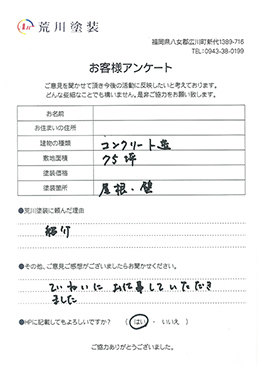 荒川塗装
福岡県八女郡広川町新代1389-716
TEL:0943-38-0199
お客様アンケート
ご意見を聞かせて頂き今後の活動に反映したいと考えております。
どんな些細なことでも構いません。是非ご協力をお願い致します。
お名前
お住まいの住所
建物の種類 コンクリート造
敷地面積 75坪
塗装価格
塗装箇所 屋根・壁
●荒川塗装に頼んだ理由
紹介
●その他、ご意見ご感想がございましたらお聞かせください。
ていねいにお仕事していただき
ました
●HPに記載してもよろしいですか? ( はい ・ いいえ )
ご協力ありがとうございました。